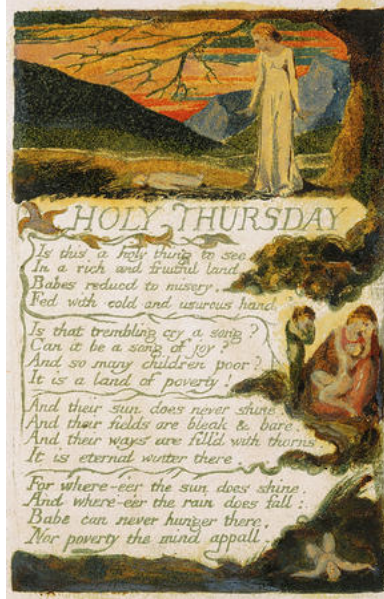 HOLY THURSDAY
Is this a holy thing to see
In a rich and fruitful land
Babes reducd to misery
Fed with cold and usurous hand
Is that trembling cry a song?
Can it be a song of joy?
And so many children poor?
It is a land of poverty!
And their sun does never shine.
And their fields are bleak & bare.
And their ways are fill'd with thorns
It is eternal winter there
For where-e'er the sun does shine.
And where-e'er the rain does fall:
Babe can never hunger there,
Nor poverty the mind appall.